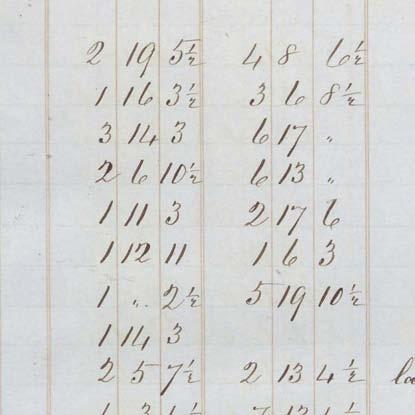 2 19 5½ 4 8 6½
1 16 3½ 3 6 8½
3 14 3 6 17 "
2 6 10½ 6 13 "
1 11 3 2 17 6
1 12 11 1 6 3
1 " 2½ 5 19 10½
1 14 3
2 5 7½ 2 13 4½